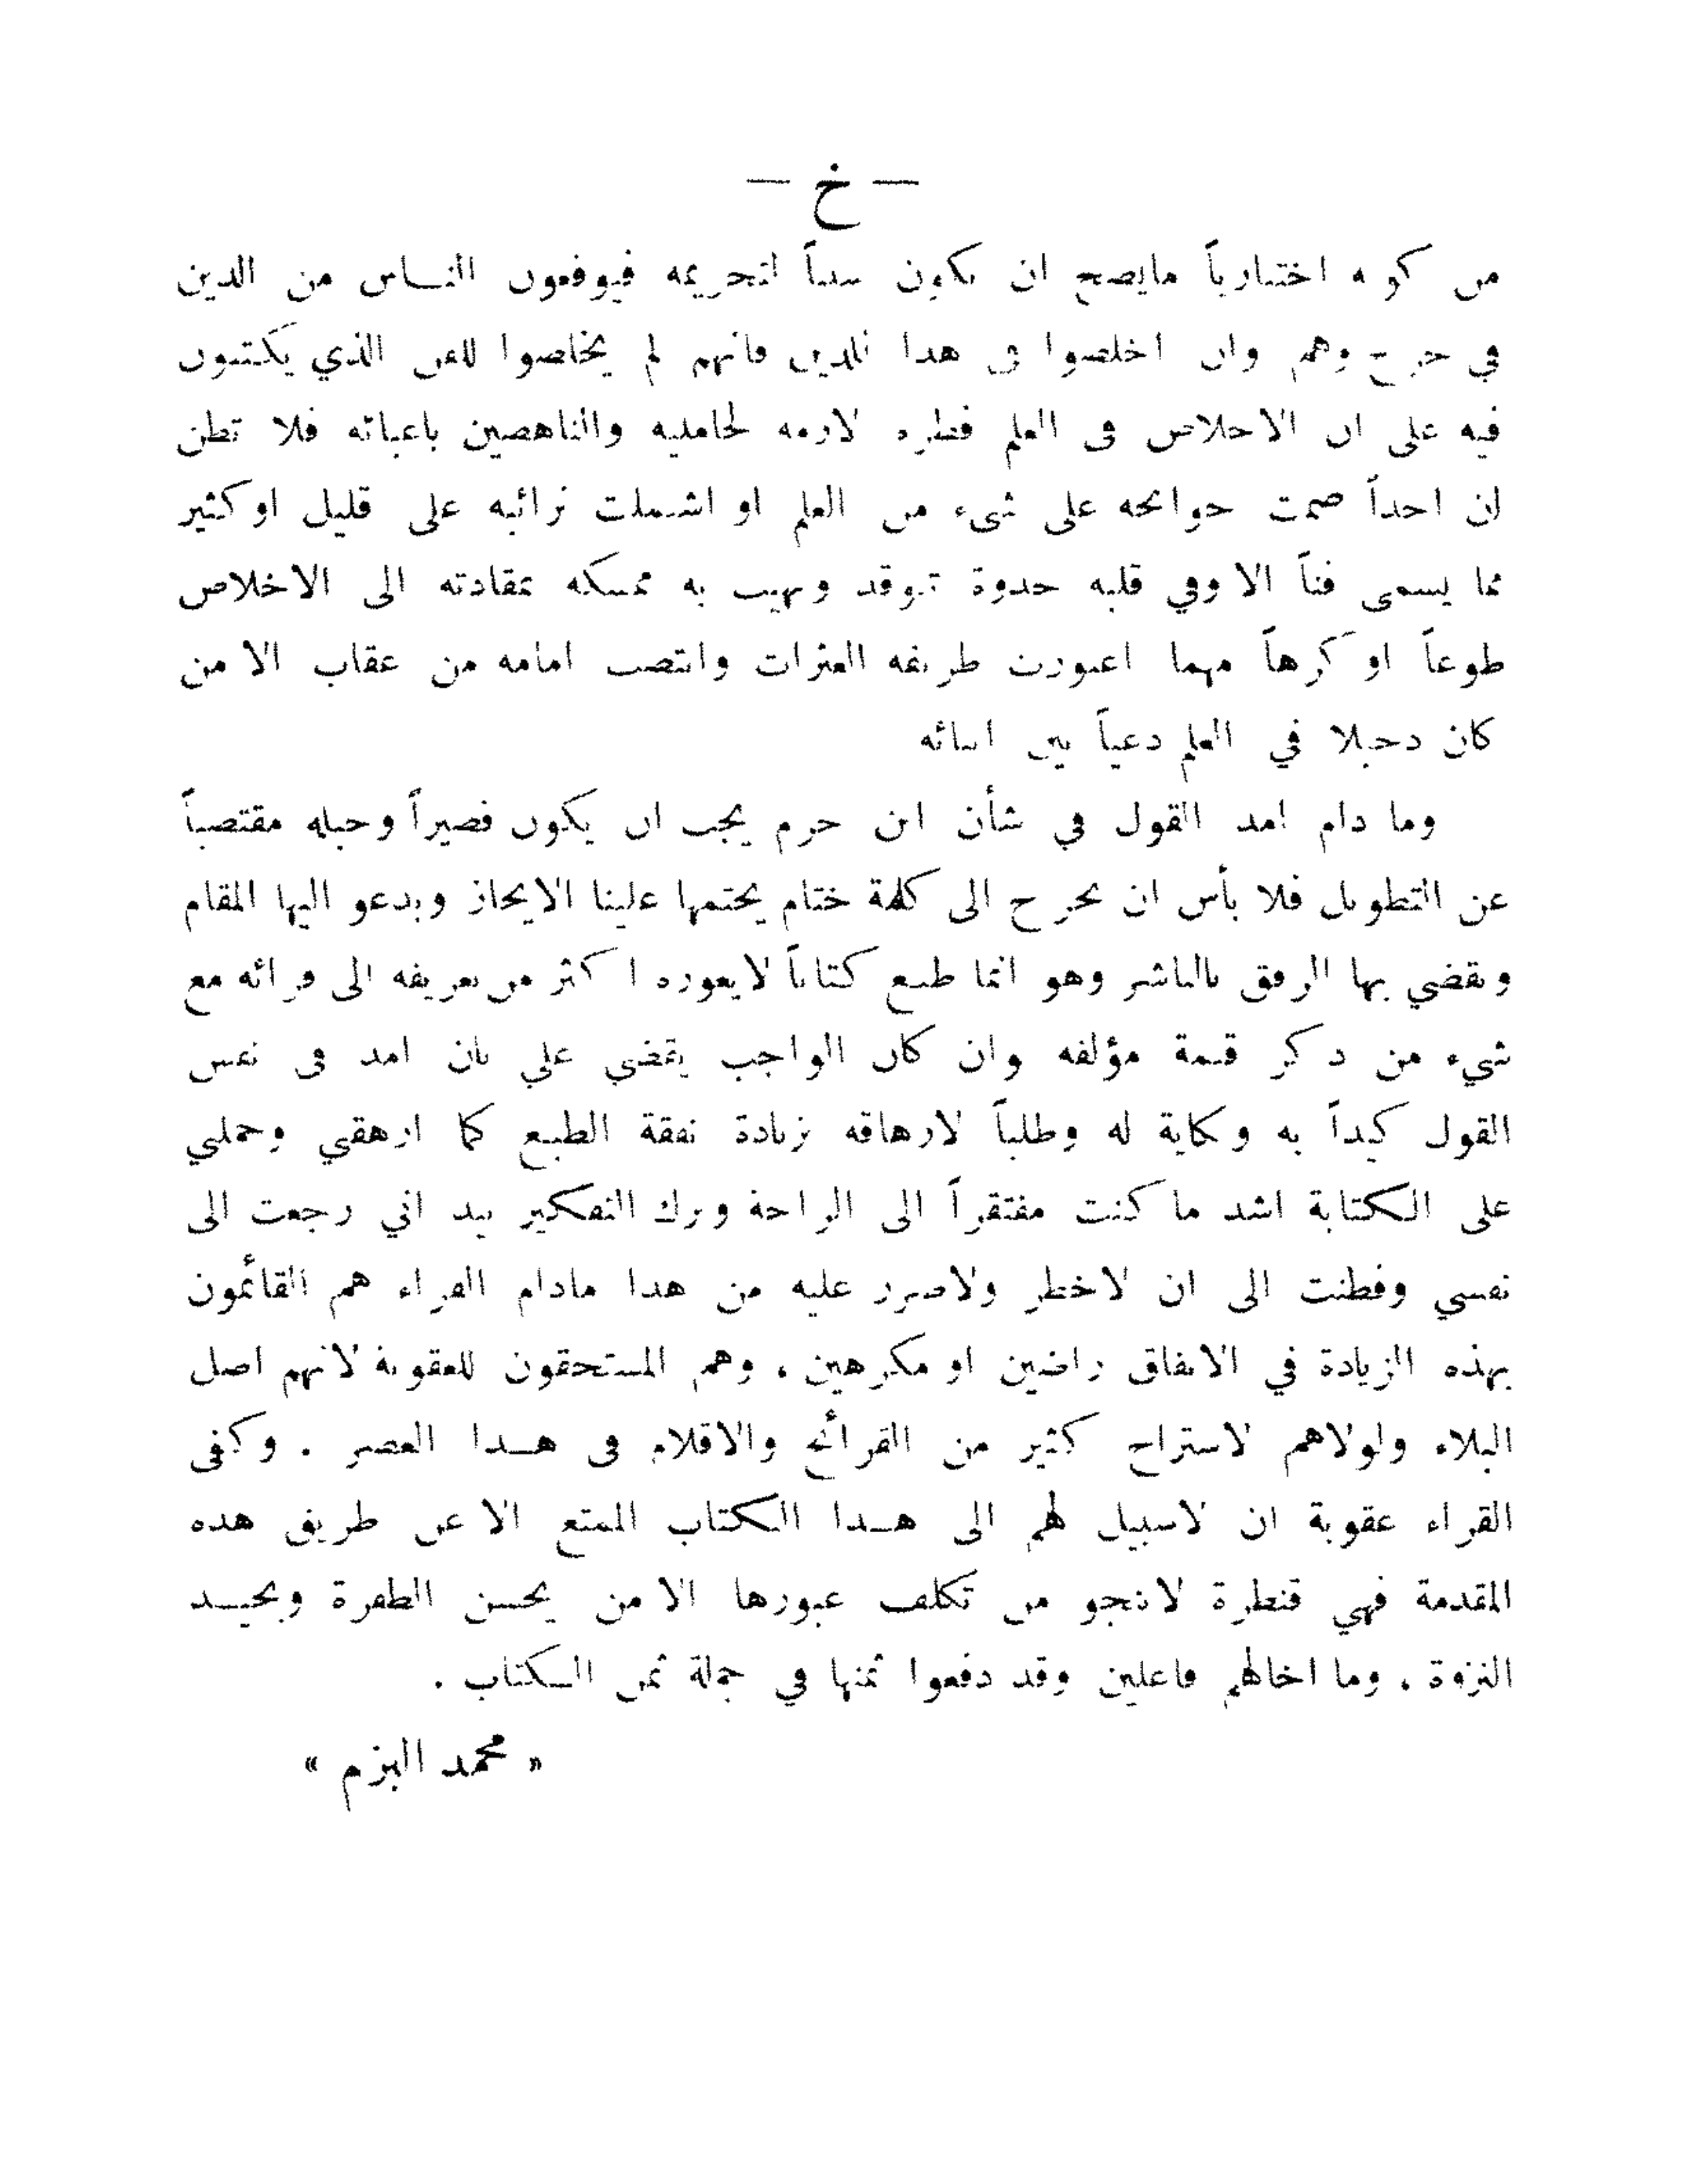 — خ —
من كونه اختيارياً مايصح ان يكون سبباً لتحريمه فيوقعون النـاس من الدين
في حرج وهم وان اخلصوا في هذا للدين فانهم لم يخلصوا للفن الذي يكتبون
فيه على ان الاخلاص في العلم فطرة لازمة لحامليه والناهضين باعبائه فلا تظن
ان احداً ضمت جوانحه على شيء من العلم او اشتملت ترائبه على قليل او كثير
مما يسمى فناً الا وفي قلبه جذوة تتوقد وتهيب به ممسكة بمقادته الى الاخلاص
طوعاً او كرهاً مهما اعتورت طريقه العثرات وانتصب امامه من عقاب الا من
كان دخيلا في العلم دعياً بين ابنائه
وما دام امد القول في شأن ابن حزم يجب ان يكون قصيراً وحبله مقتضباً
عن التطويل فلا بأس ان نخرج الى كلمة ختام يحتمها علينا الايجاز ويدعو اليها المقام
ويقضي بها الرفق بالناشر وهو انما طبع كتاباً لايعوزه اكثر من تعريفه الى قرائه مع
شيء من ذكر قيمة مؤلفه وان كان الواجب يقضي علي بان امد في نفس
القول كيداً به ونكاية له وطلباً لارهاقه بزيادة نفقة الطبـع كما ارهقني وحملني
على الكتابة اشد ما كنت مفتقراً الى الراحة وترك التفكير بيد اني رجعت الى
نفسي وفطنت الى ان لاخطر ولاضرر عليه من هذا مادام القراء هم القائمون
بهذه الزيادة في الانفاق راضين او مكرهين ، وهم المستحقون للعقوبة لانهم اصل
البلاء ولولاهم لاستراح كثير من القرائح والاقلام في هـذا العصر . وكفى
القراء عقوبة ان لاسبيل لهم الى هـذا الكتاب الممتع الا عن طريق هذه
المقدمة فهي قنطرة لاينجو من تكلف عبورها الا من يحسن الطفرة ويجيـد
النزوة ، وما اخالهم فاعلين وقد دفعوا ثمنها في جملة ثمن الكتاب .
« محمد البزم »